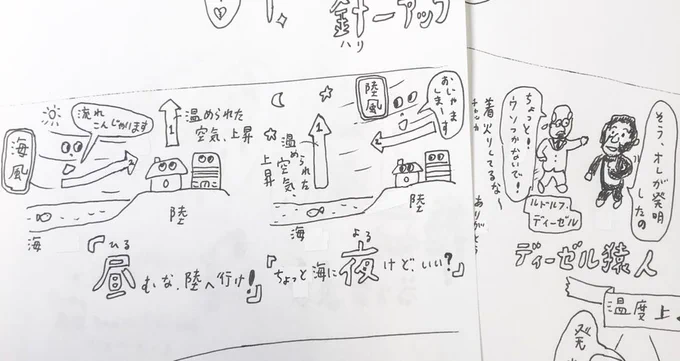 針ーアップ
ハリ
海風
流れ
こんじゃいます
温められた
空気、上昇
陸
海
『昼むな、陸へ行け!』
ひる
陸風
おじゃま
しまーす
温められた
空気、
上昇
陸
海
『ちょっと海に夜けど、いい?』
よる
ちょっと!
ウソつかないで!
そう、オレが発明
したの
ルドルフ・
ディーゼル
着火りしてるな〜
チャッカ
ありがとう
ディーゼル猿人
温度上
発